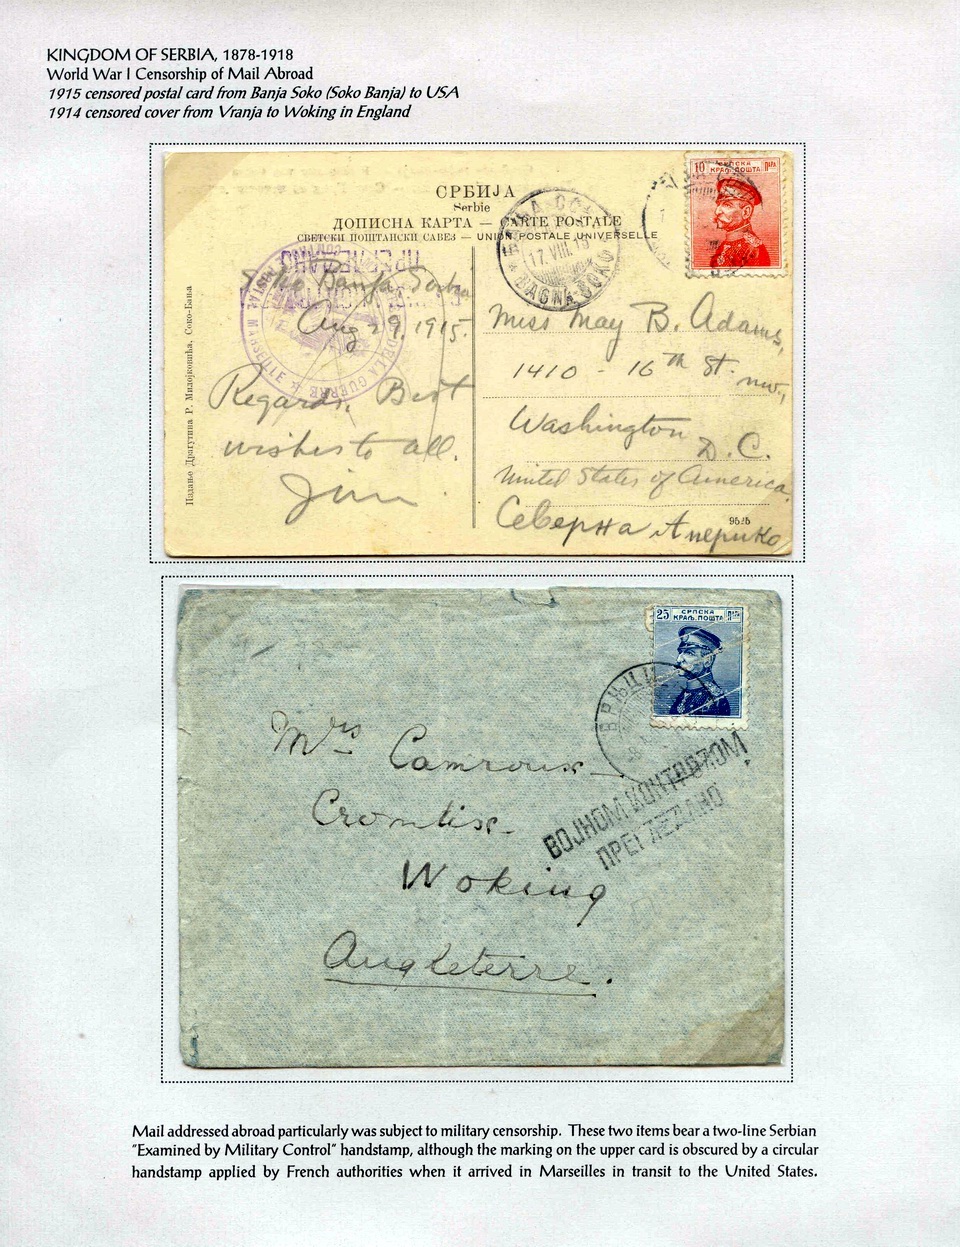 KINGDOM OF SERBIA, 1878-1918
World War I Censorship of Mail Abroad
1915 censored postal card from Banja Soko (Soko Banja) to USA
1914 censored cover from Vranja to Woking in England
СРБИЈА
Serbie
ДОПИСНА КАРТА — CARTE POSTALE
СВЕТСКИ ПОШТАНСКИ САВЕЗ — UNION POSTALE UNIVERSELLE
10 СРПСКА ПАРА
КРАЉ. ПОШТА
17. VIII. 15
BAGNA-SOKO
ПРЕГЛЕДАНО
DE LA GUERRE
Soko Banja, Serbia
Aug 29, 1915.
Regards, Best
wishes to all.
Jim
Издање Драгутина Р. Милојковића, Соко-Бања
Miss May B. Adams,
1410 - 16th St. nw.,
Washington
D. C.
United States of America
Северна Америко
25 СРПСКА ПАРА
КРАЉ. ПОШТА
ВРЊЦИ
ВОЈНОМ КОНТРОЛОМ
ПРЕГЛЕДАНО
Mrs Camroux
Crontix
Woking
Angleterre.
Mail addressed abroad particularly was subject to military censorship. These two items bear a two-line Serbian
"Examined by Military Control" handstamp, although the marking on the upper card is obscured by a circular
handstamp applied by French authorities when it arrived in Marseilles in transit to the United States.